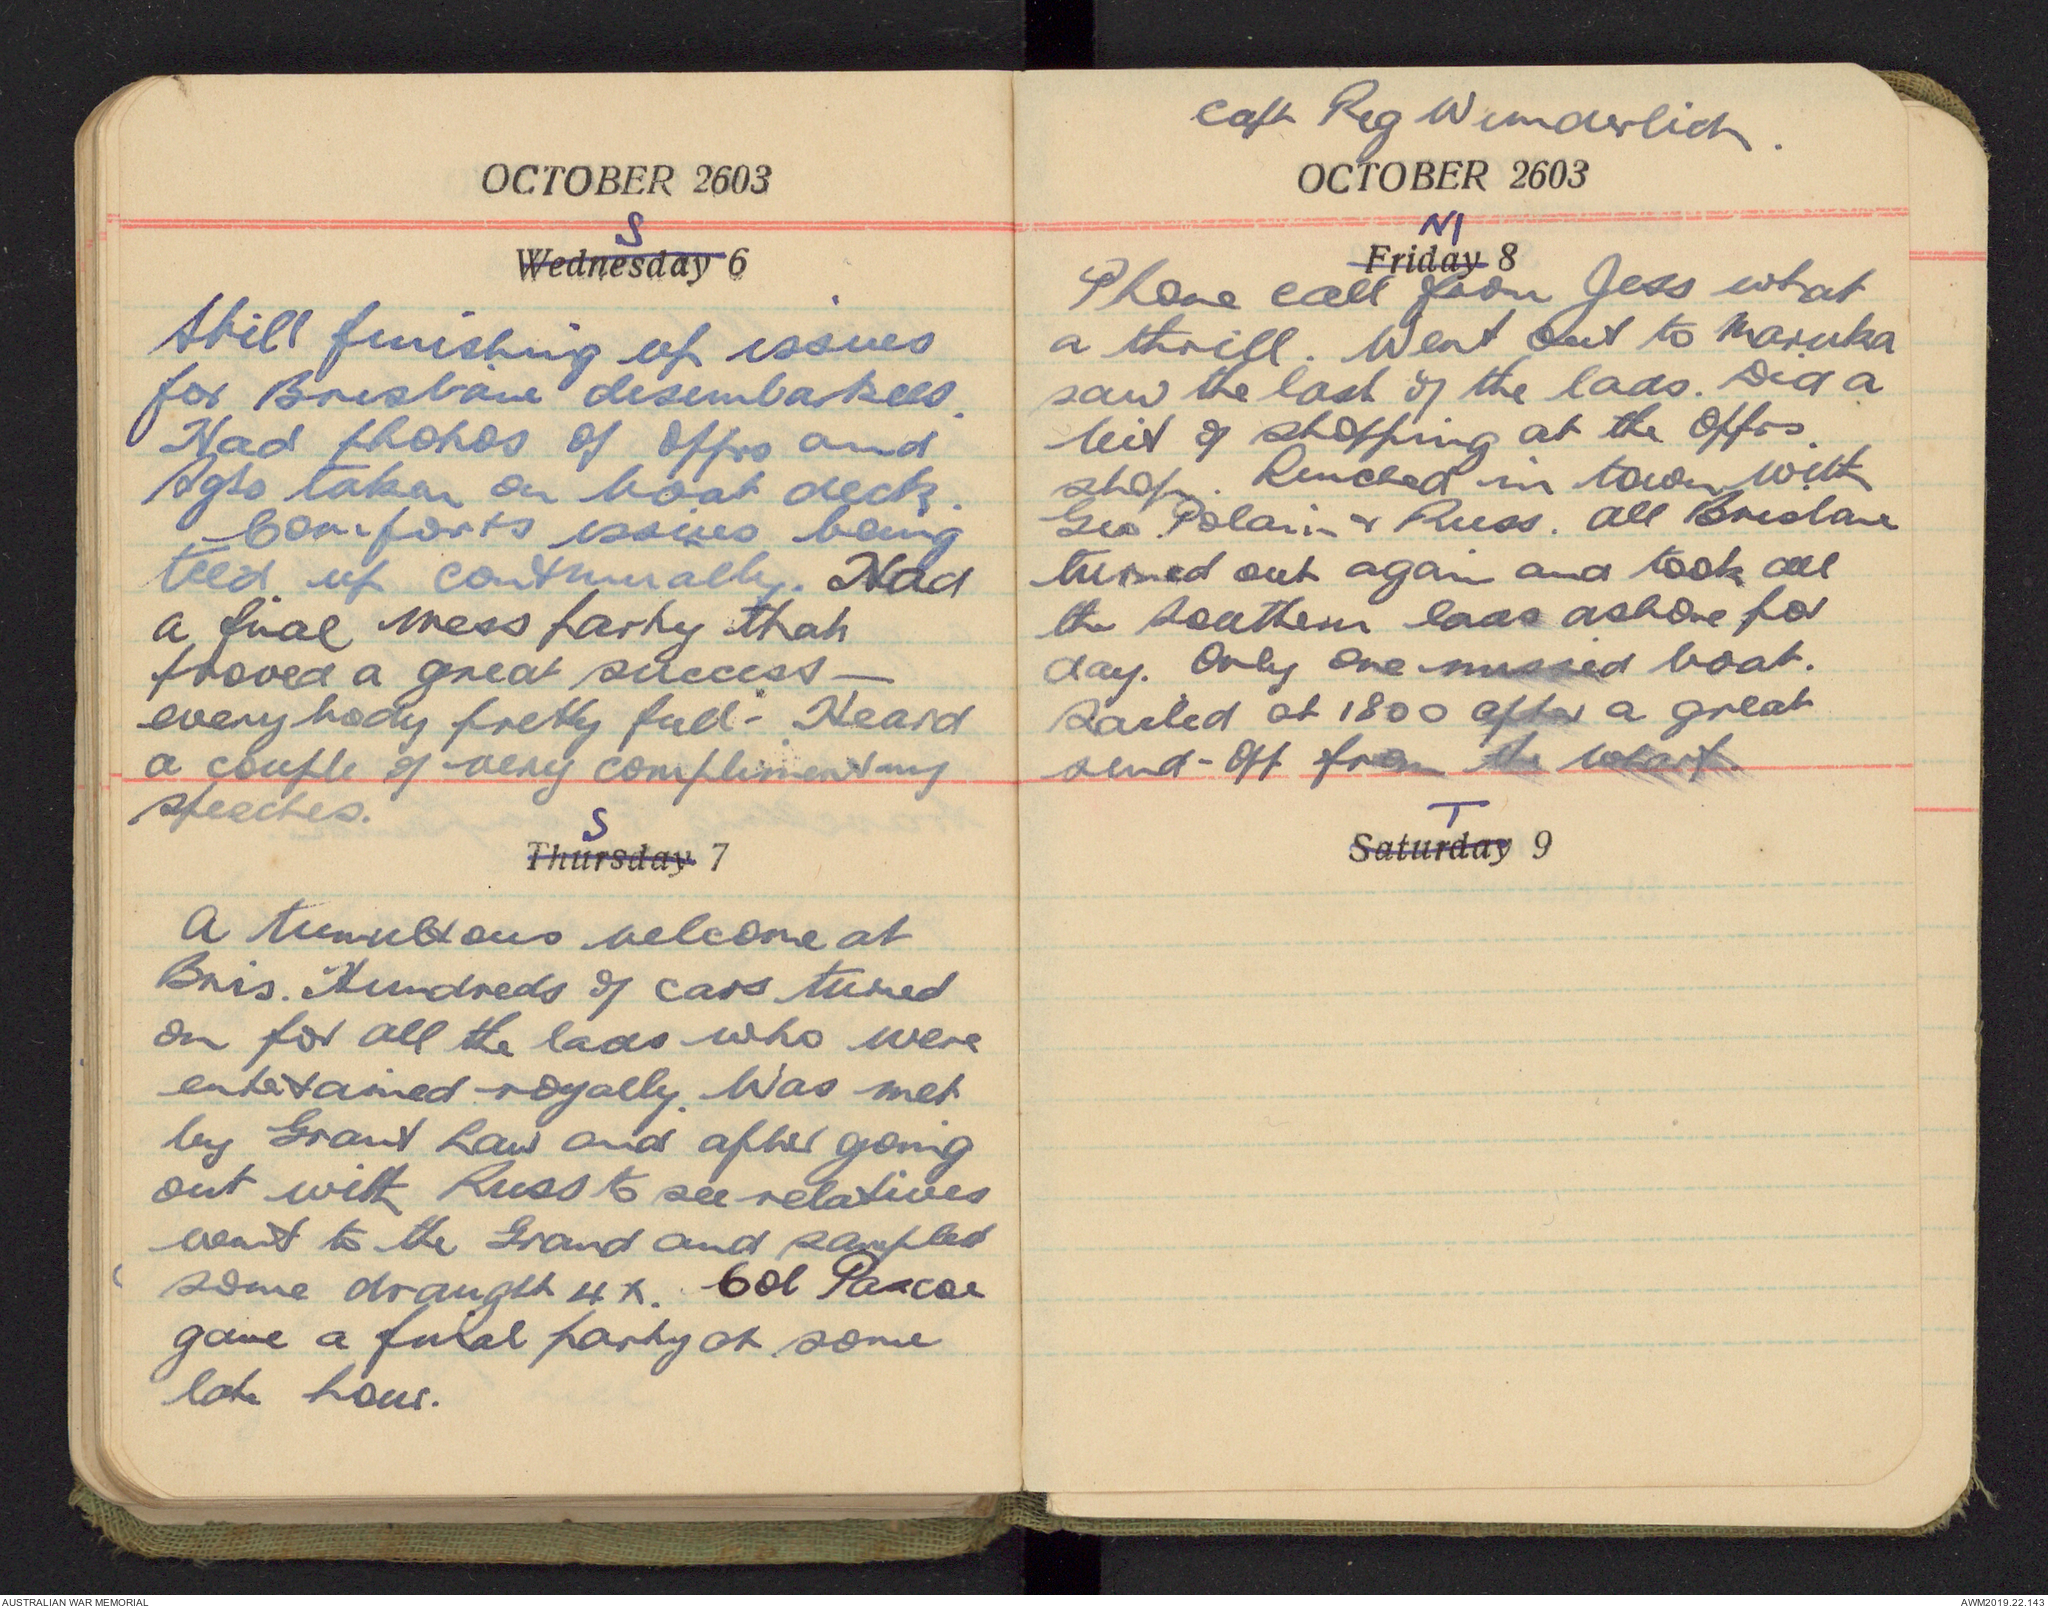 OCTOBER 2603
S
Wednesday 6
Still finishing up issues
for Brisbane disembarkees.
Had photos of offrs and
Sgts taken on boat deck.
Comforts issues being
teed up continually. Had
a final mess party that
proved a great success —
everybody pretty full - Heard
a couple of very complimentary
speeches.
S
Thursday 7
A tumultous welcome at
Bris. Hundreds of cars turned
on for all the lads who were
entertained royally. Was met
by Grant Law and after going
out with Russ to see relatives
went to the Grand and sampled
some draught 4X. Col Pascoe
gave a final party at some
late hour.
Capt Reg Wunderlich.
OCTOBER 2603
M
Friday 8
Phone call from Jess what
a thrill. Went out to Maruka
saw the last of the lads. Did a
bit of shopping at the offrs.
shop. Lunched in town with
Geo Polain & Russ. All Brisbane
turned out again and took all
the Southern lads ashore for
day. Only one missed boat.
Sailed at 1800 after a great
send-off from the wharf.
T
Saturday 9
AUSTRALIAN WAR MEMORIAL
AWM2019.22.143